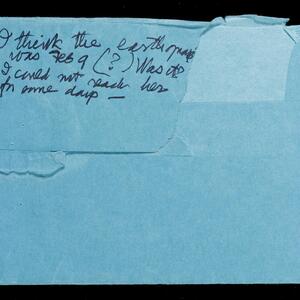 I think the earthquake
was Feb 9 (?) Was it?
I could not reach her
for some days —